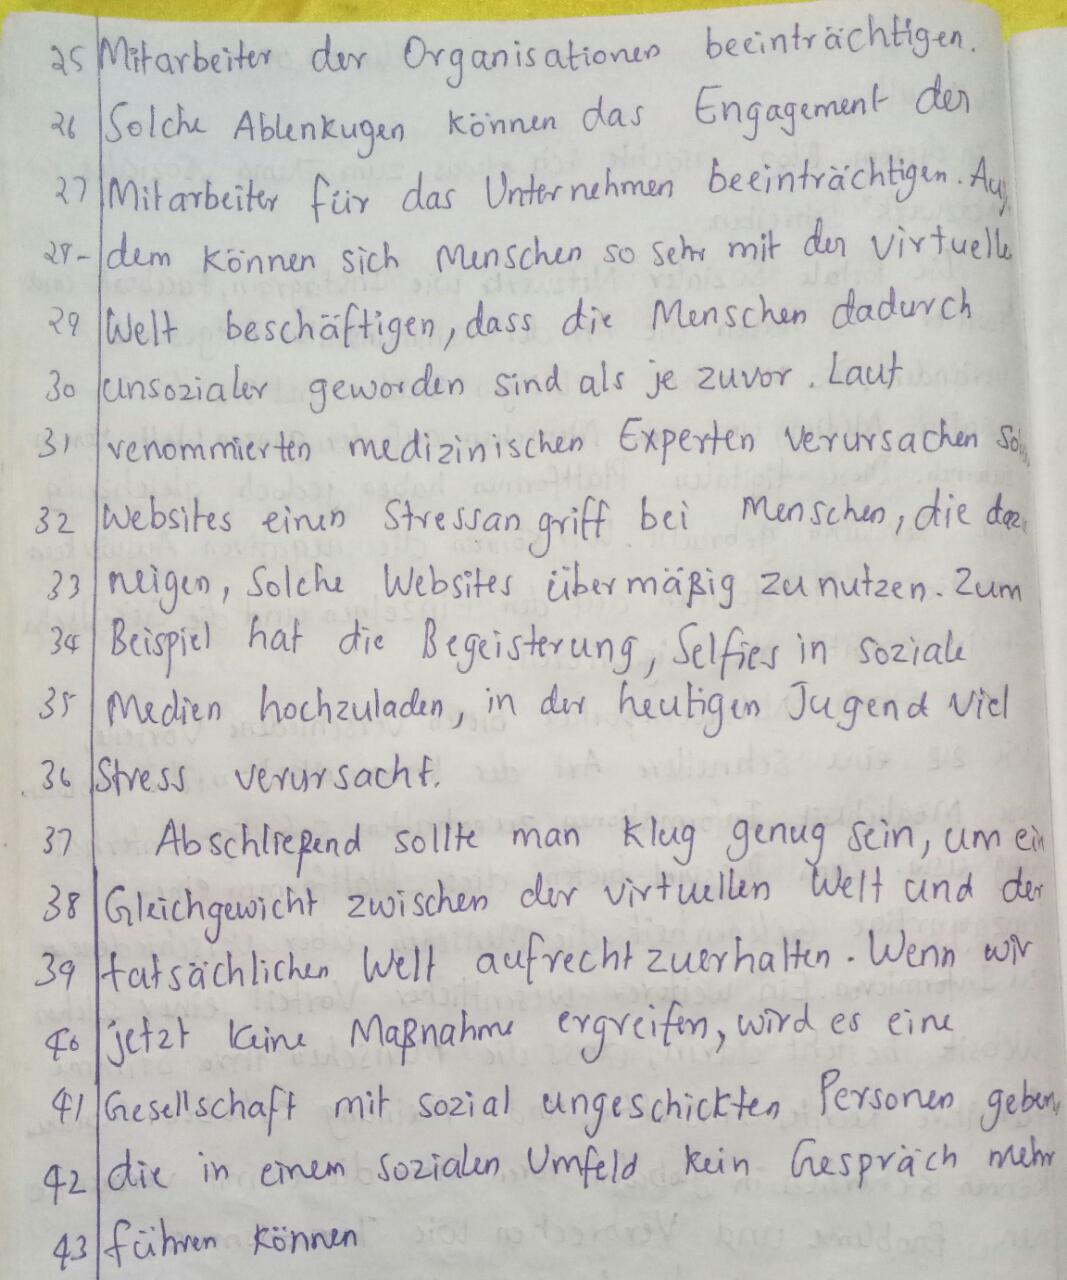 25 Mitarbeiter der Organisationen beeinträchtigen.
26 Solche Ablenkugen können das Engagement der
27 Mitarbeiter für das Unternehmen beeinträchtigen.
28- dem können sich Menschen so sehr mit der virtuelle
29 Welt beschäftigen, dass die Menschen dadurch
30 unsozialer geworden sind als je zuvor. Laut
31 renommierten medizinischen Experten verursachen
32 Websites einen Stressangriff bei Menschen, die
33 neigen, solche Websites übermäßig zu nutzen. Zum
34 Beispiel hat die Begeisterung, Selfies in soziale
35 Medien hochzuladen, in der heutigen Jugend viel
36 Stress verursacht.
37 Abschließend sollte man klug genug sein, um ein
38 Gleichgewicht zwischen der virtuellen Welt und der
39 tatsächlichen Welt aufrechtzuerhalten. Wenn wir
40 jetzt keine Maßnahme ergreifen, wird es eine
41 Gesellschaft mit sozial ungeschickten Personen geben,
42 die in einem sozialen Umfeld kein Gespräch mehr
43 führen können